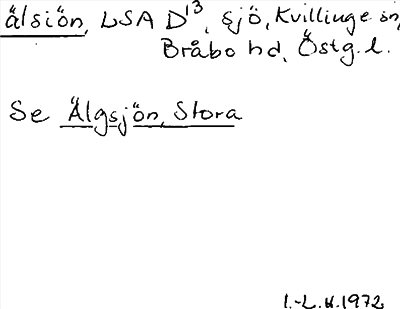 älsiön, LSA D¹³, sjö, Kvillinge sn,
Bråbo hd, Östg.l.
Se Älgsjön, Stora
I.-L. H. 1972